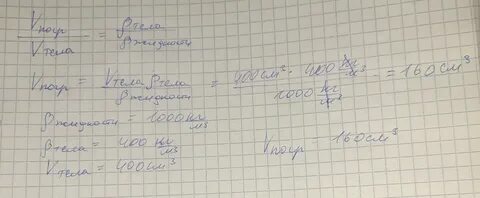 Vпогр / Vтела = ρтела / ρжидкости
Vпогр = Vтела ρтела / ρжидкости = 400см³ · 400 кг/м³ / 1000 кг/м³ = 160см³
ρжидкости = 1000 кг/м³
ρтела = 400 кг/м³
Vтела = 400см³
Vпогр = 160см³